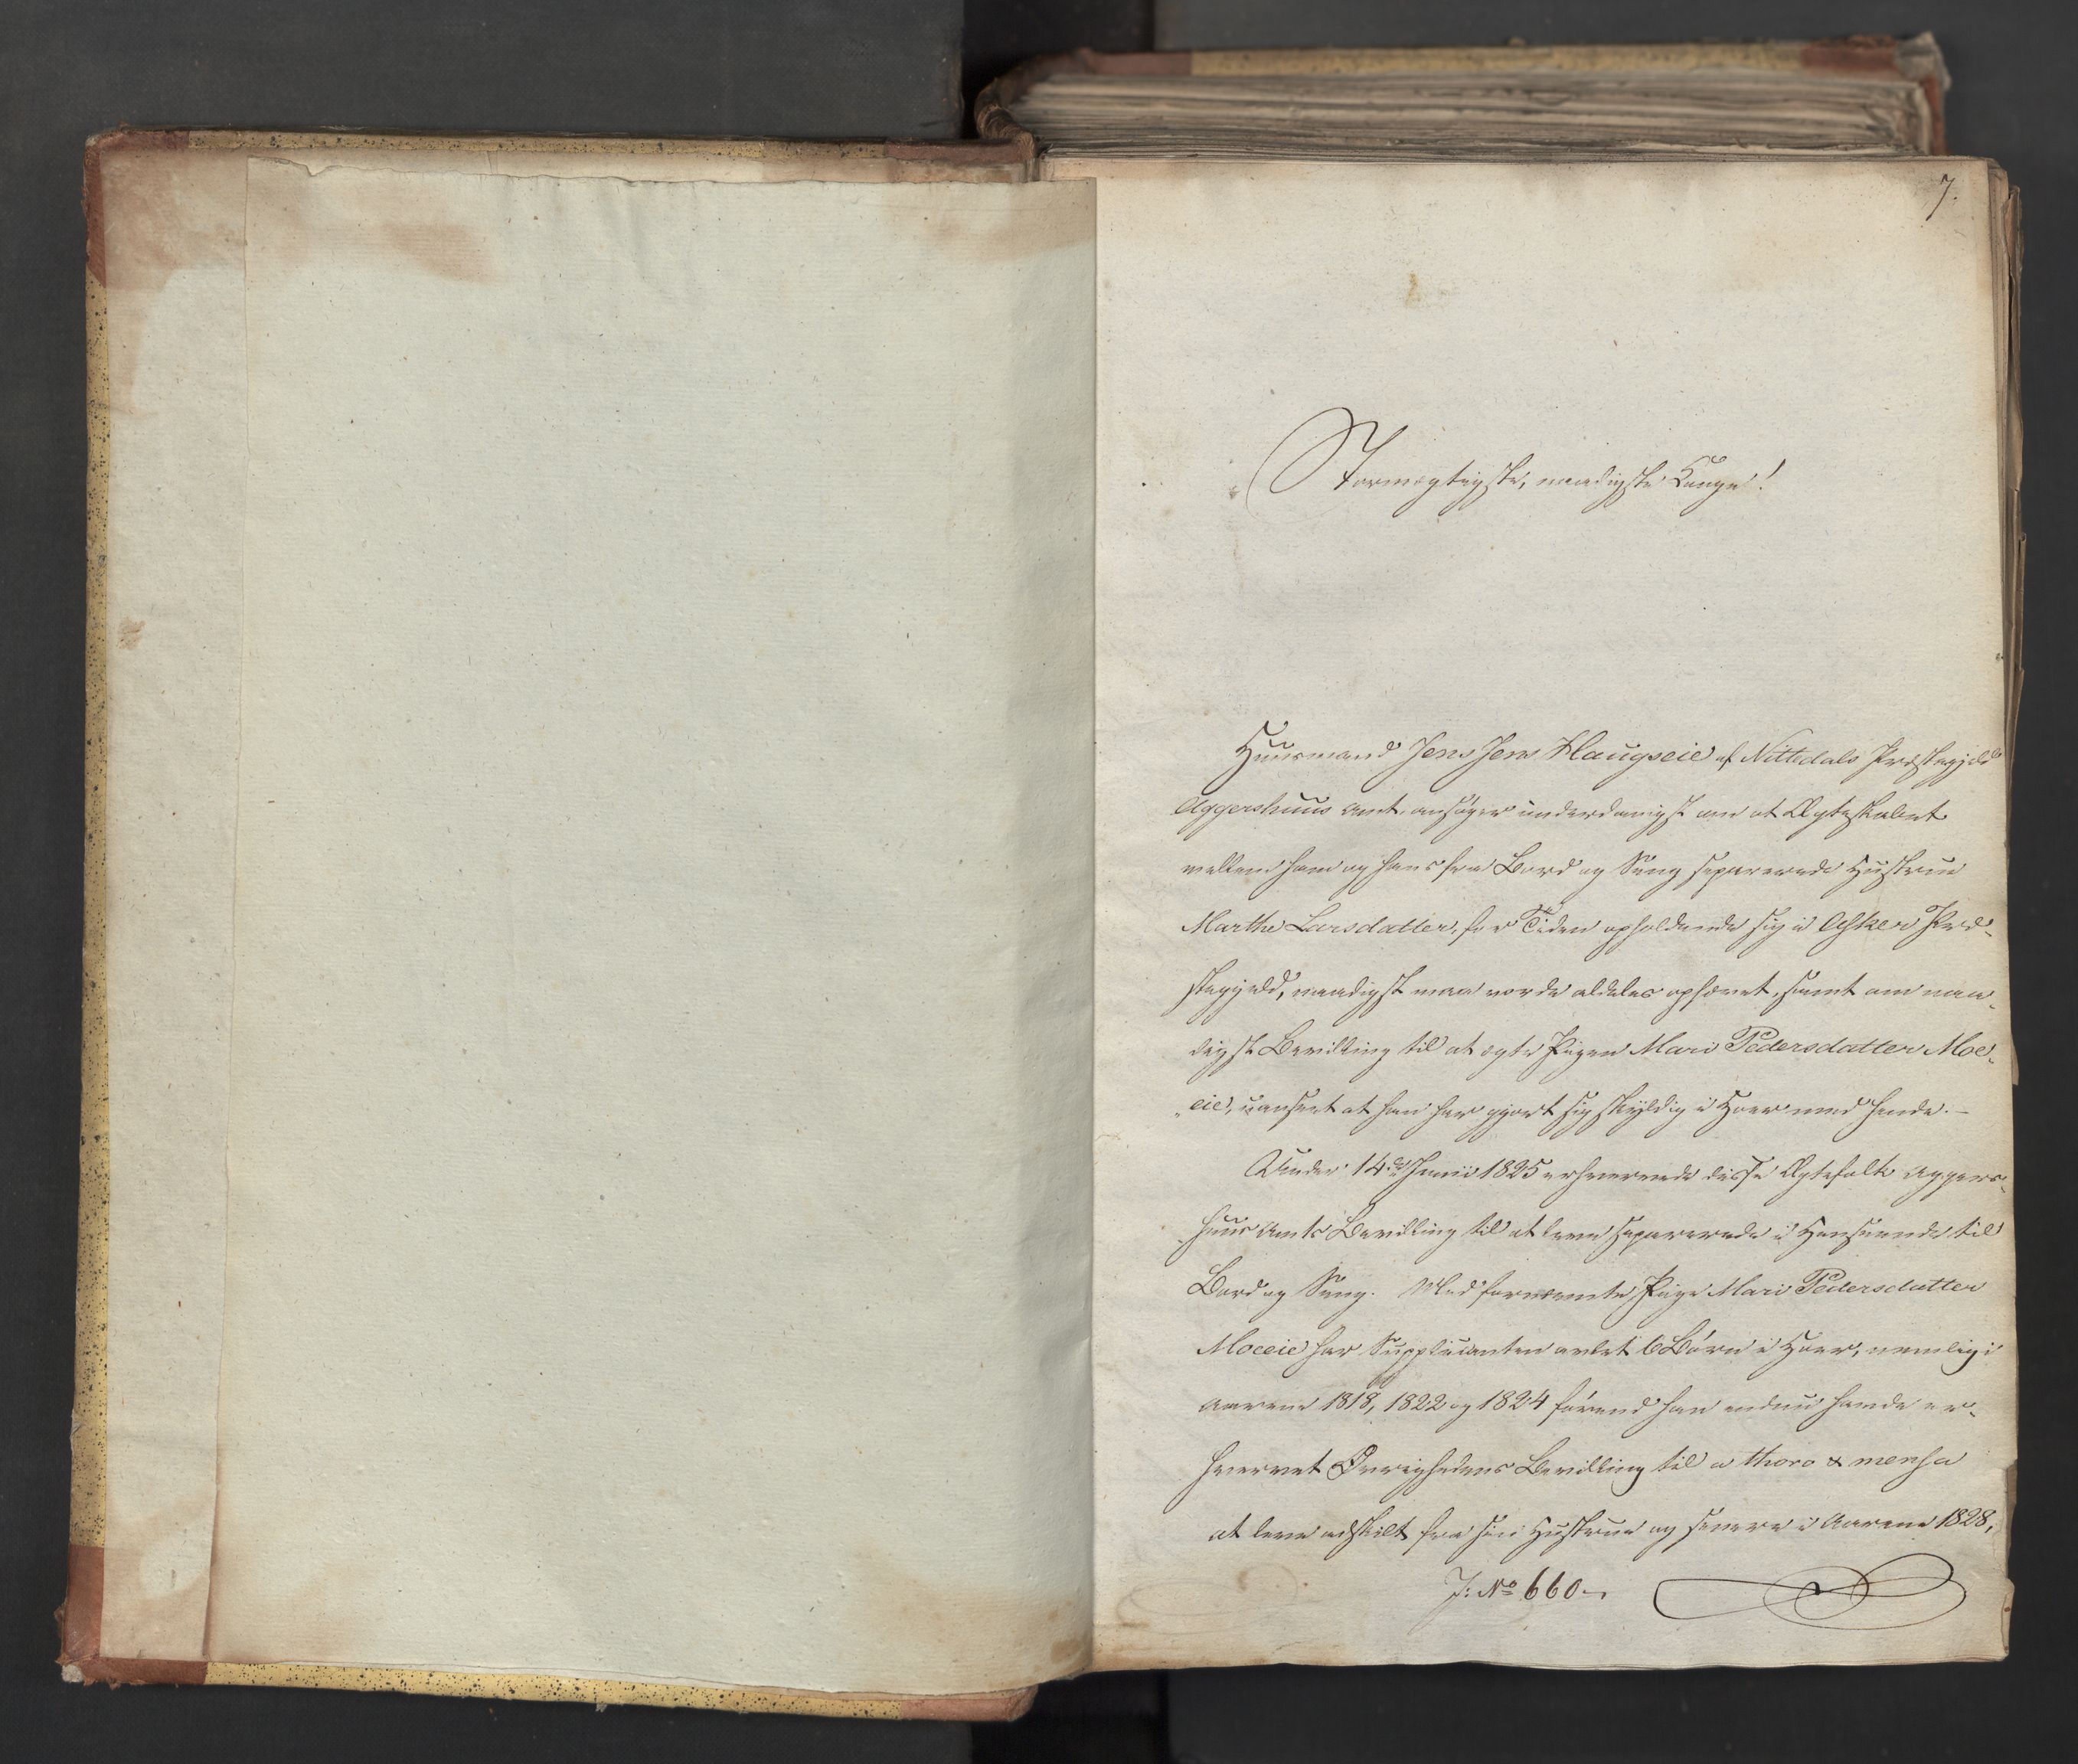 7.
Stormægtigste, naadigste Konge!
Huusmand Jens Jens Haugseie af Nittedals Præstegjeld
Aggershuus Amt, ansøger underdanigst om at Ægteskabet
mellem ham og hans fra Bord og Seng separerede Hustrue
Marthe Larsdatter, for Tiden opholdende sig i Asker Præ-
stegjeld, naadigst maa vorde aldeles ophævet, samt om naa-
digst Bevilling til at ægte Pigen Mari Pedersdatter Moe-
eie, uanseet at han har gjort sig skyldig i Hoer med hende. -
Under 14de Junii 1825 erhvervede disse Ægtefolk Aggers-
huus Amts Bevilling til at leve separerede i Henseende til
Bord og Seng. Med fornævnte Pige Mari Pedersdatter
Moeeie har Supplicanten avlet 6 Børn i Hoer, nemlig i
Aarene 1818, 1822 og 1824 førend han endnu havde er-
hvervet Øvrighedens Bevilling til a thoro & mensa
at leve adskilt fra sin Hustrue og senere i Aarene 1828,
J: No 660.